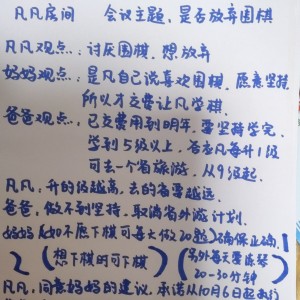 凡凡房间 会议主题，是否放弃围棋
凡凡观点：讨厌围棋，想放弃
妈妈观点：是凡自己说喜欢围棋，愿意坚持
所以才交费让凡学棋
爸爸观点，已交费用到明年，要坚持学完，
学到5级以上，爸爸凡每升1级
可去一个省旅游，从9级起.
凡凡：升的级越高，去的省要越远.
爸爸，做不到坚持，取消省外游计划.
妈妈（如不愿下棋可每天做20题）确保正确.
（想下棋时可下棋）（另外每天要练琴
20-30分钟
凡凡，同意妈妈的建议，承诺从10月6日起执行